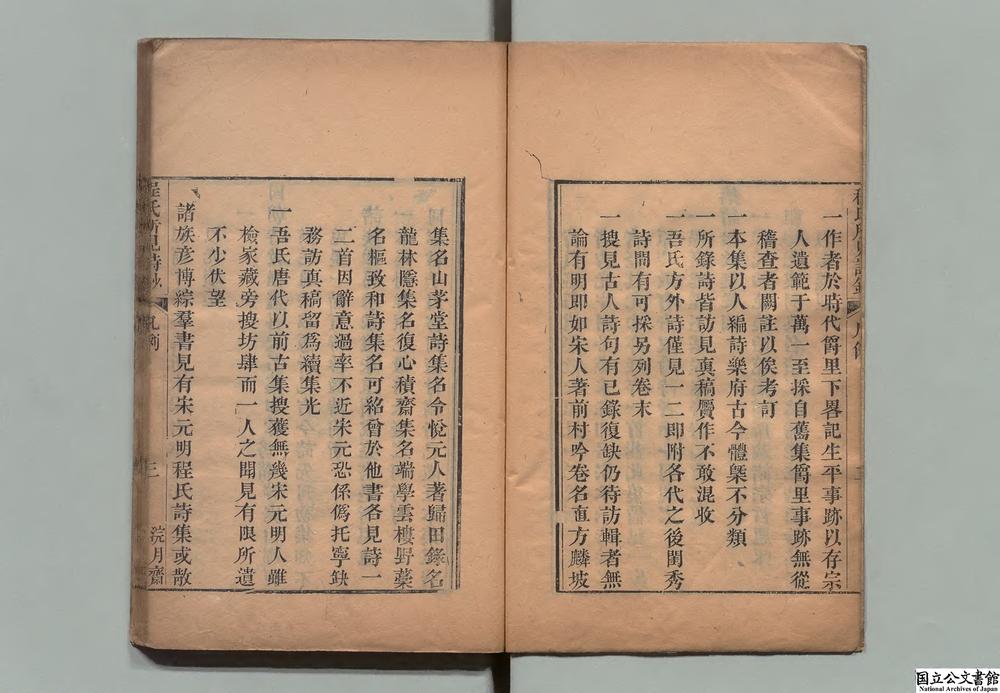 一作者於時代爵里下畧記生平事跡以存宗
人遺範于萬一至採自舊集爵里事跡無從
稽查者闕註以俟考訂
一本集以人編詩樂府古今體槩不分類
一所錄詩皆訪見真稿贗作不敢混收
一吾氏方外詩僅見一二即附各代之後閨秀
詩間有可採另列卷末
一搜見古人詩句有已錄復缺仍待訪輯者無
論有明即如宋人著前村吟卷名直方麟坡
集名山茅堂詩集名令悅元人著歸田錄名
龍林隱集名復心積齋集名端學雲樓野藁
名樞致和詩集名可紹曾於他書各見詩一
二首因辭意過率不近宋元恐係僞托寧缺
務訪真稿留爲續集光
一吾氏唐代以前古集搜獲無幾宋元明人雖
檢家藏旁搜坊肆而一人之聞見有限所遺
不少伏望
諸族彥博綜羣書見有宋元明程氏詩集或散
程氏所見詩鈔
凡例
三
浣月齋
国立公文書館
National Archives of Japan